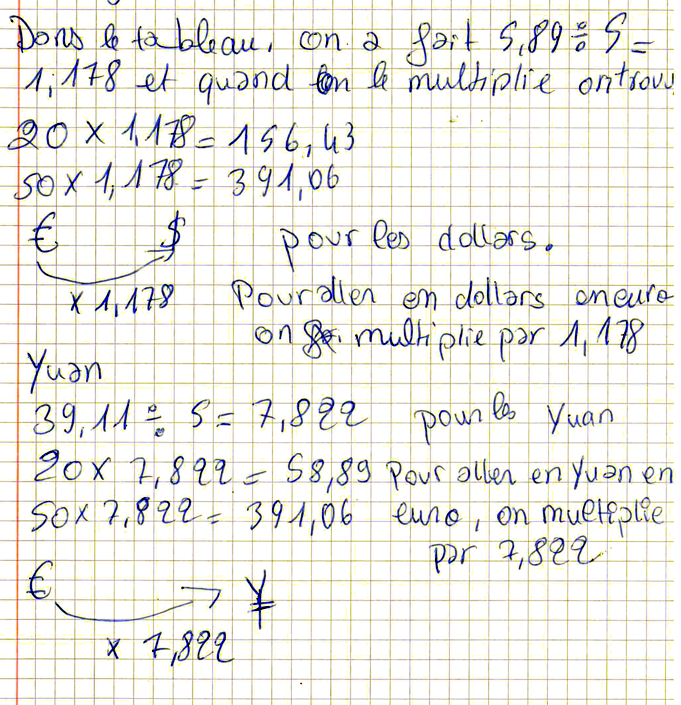 Dans le tableau, on a fait 5,89 ÷ 5 =
1,178 et quand on le multiplie on trouv
20 × 1,178 = 156,43
50 × 1,178 = 391,06
€ $ pour les dollars.
× 1,178 Pour aller en dollars en euro
on multiplie par 1,178
Yuan
39,11 ÷ 5 = 7,822 pour les Yuan
20 × 7,822 = 58,89 Pour aller en Yuan en
50 × 7,822 = 391,06 euro, on multiplie
par 7,822
€ ¥
× 7,822